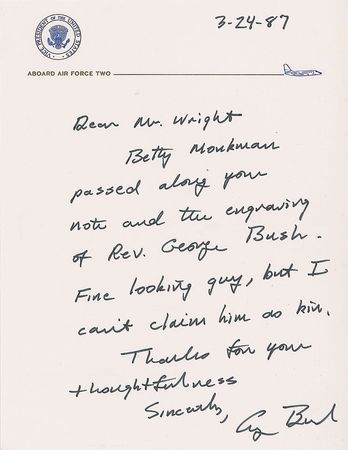 3-24-87
VICE PRESIDENT OF THE UNITED STATES
ABOARD AIR FORCE TWO
Dear Mr. Wright
Betty Monkman
passed along your
note and the engraving
of Rev. George Bush.
Fine looking guy, but I
can't claim him as kin.
Thanks for your
thoughtfulness
Sincerely,
Gg Bush